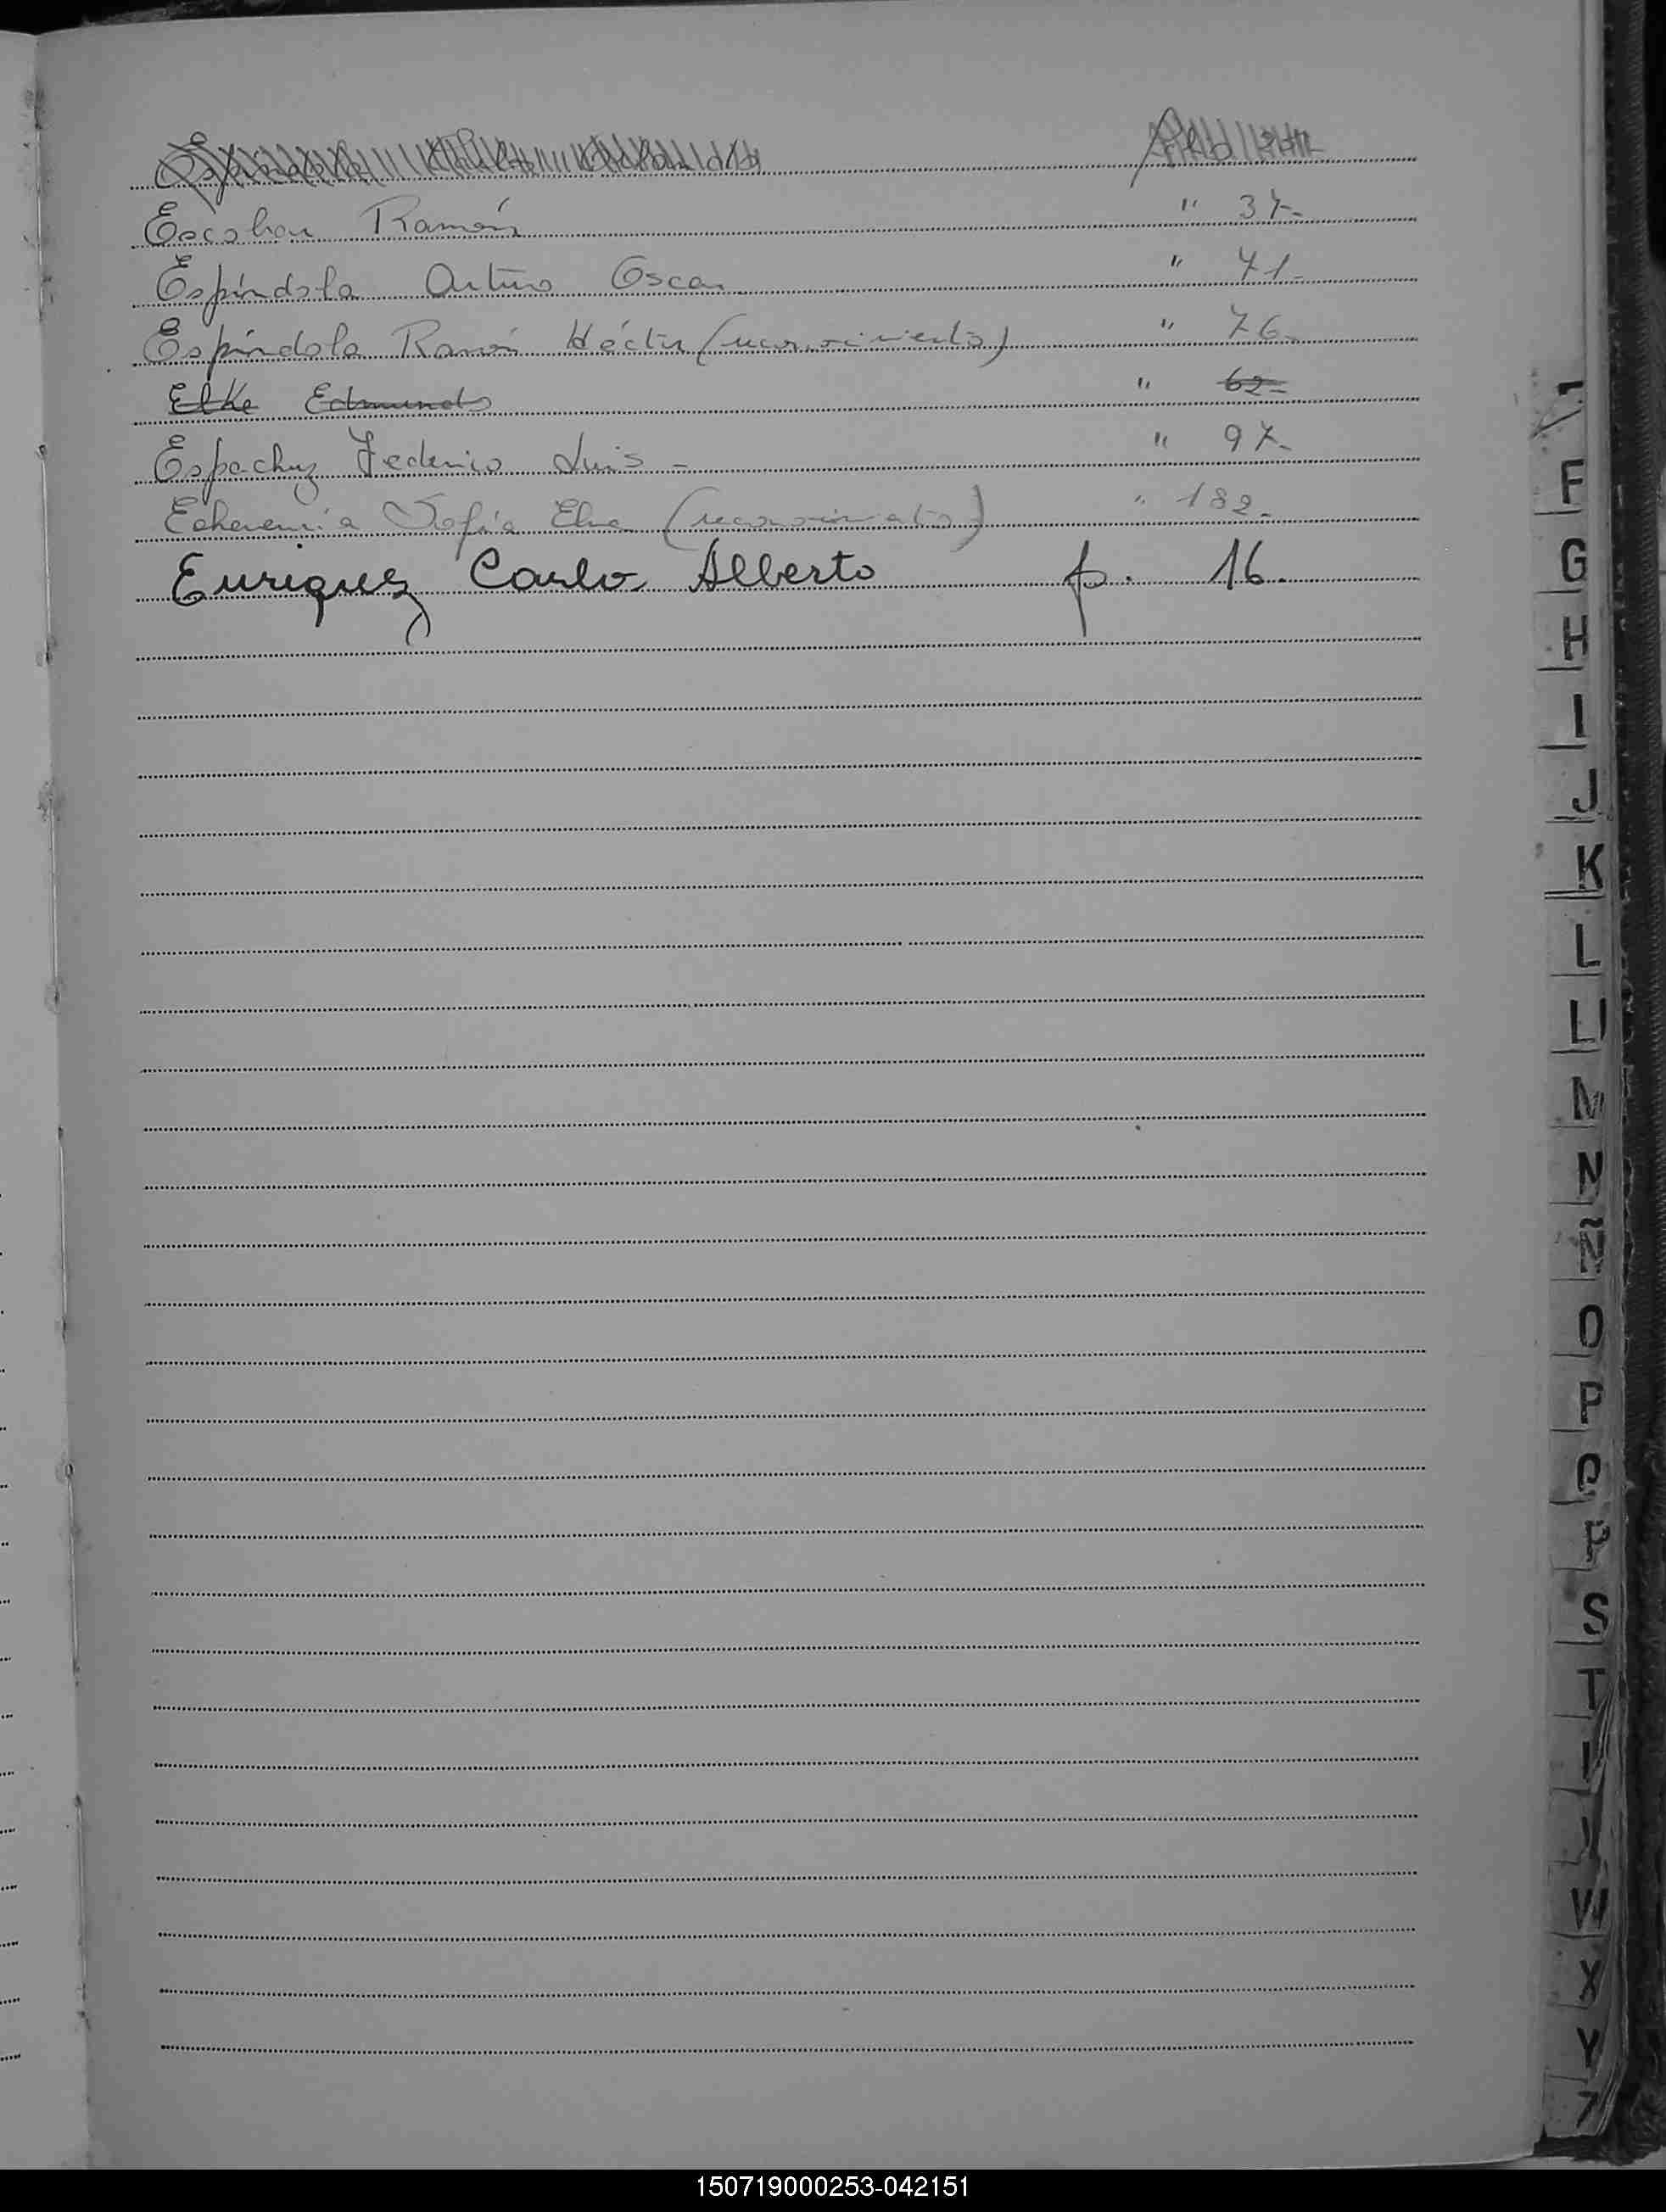 Escobar Ramón " 37-
Espíndola Arturo Oscar " 71-
Espíndola Ramón Héctor (reconocimiento) " 76-
Elke Edmundo " 62-
Federico Luis - " 97-
Echeverría Sofía Elva (reconocimiento) " 182-
Enriquez Carlos Alberto p. 16.
F
G
H
I
J
K
L
Ll
M
N
Ñ
O
P
Q
R
S
T
U
V
W
X
Y
Z
150719000253-042151